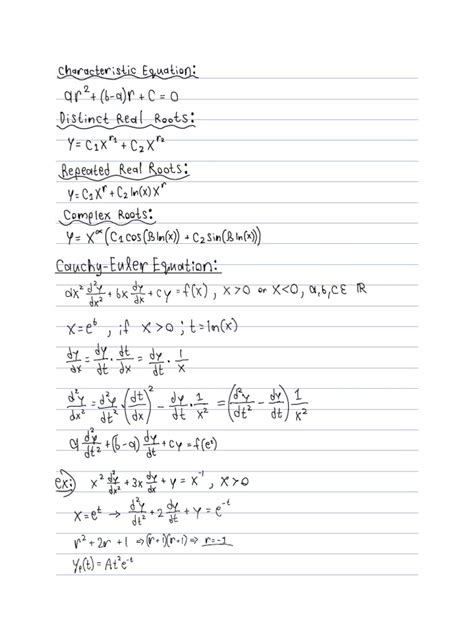 Characteristic Equation:
ar² + (b-a)r + C = 0
Distinct Real Roots:
Y = C₁X^r₁ + C₂X^r₂
Repeated Real Roots:
Y = C₁X^r + C₂ln(x)X^r
Complex Roots:
Y = X^α(C₁cos(βln(x)) + C₂sin(βln(x)))
Cauchy-Euler Equation:
ax² d²y/dx² + bx dy/dx + cy = f(x), x>0 or x<0, a,b,c ∈ ℝ
x = e^t, if x>0; t = ln(x)
dy/dx = dy/dt · dt/dx = dy/dt · 1/x
d²y/dx² = d²y/dt² (dt/dx)² - dy/dt · 1/x² = (d²y/dt² - dy/dt) 1/x²
a d²y/dt² + (b-a) dy/dt + cy = f(e^t)
ex: x² d²y/dx² + 3x dy/dx + y = x⁻¹, x>0
x = e^t → d²y/dt² + 2 dy/dt + y = e^-t
r² + 2r + 1 ⇒ (r+1)(r+1) ⇒ r = -1
Yₚ(t) = At²e^-t